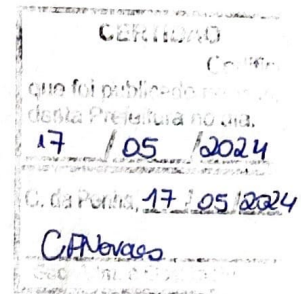 CERTIDÃO
que foi publicado
desta Prefeitura no dia,
17 / 05 / 2024
C. da Penha, 17 / 05 / 2024
CFNovaes